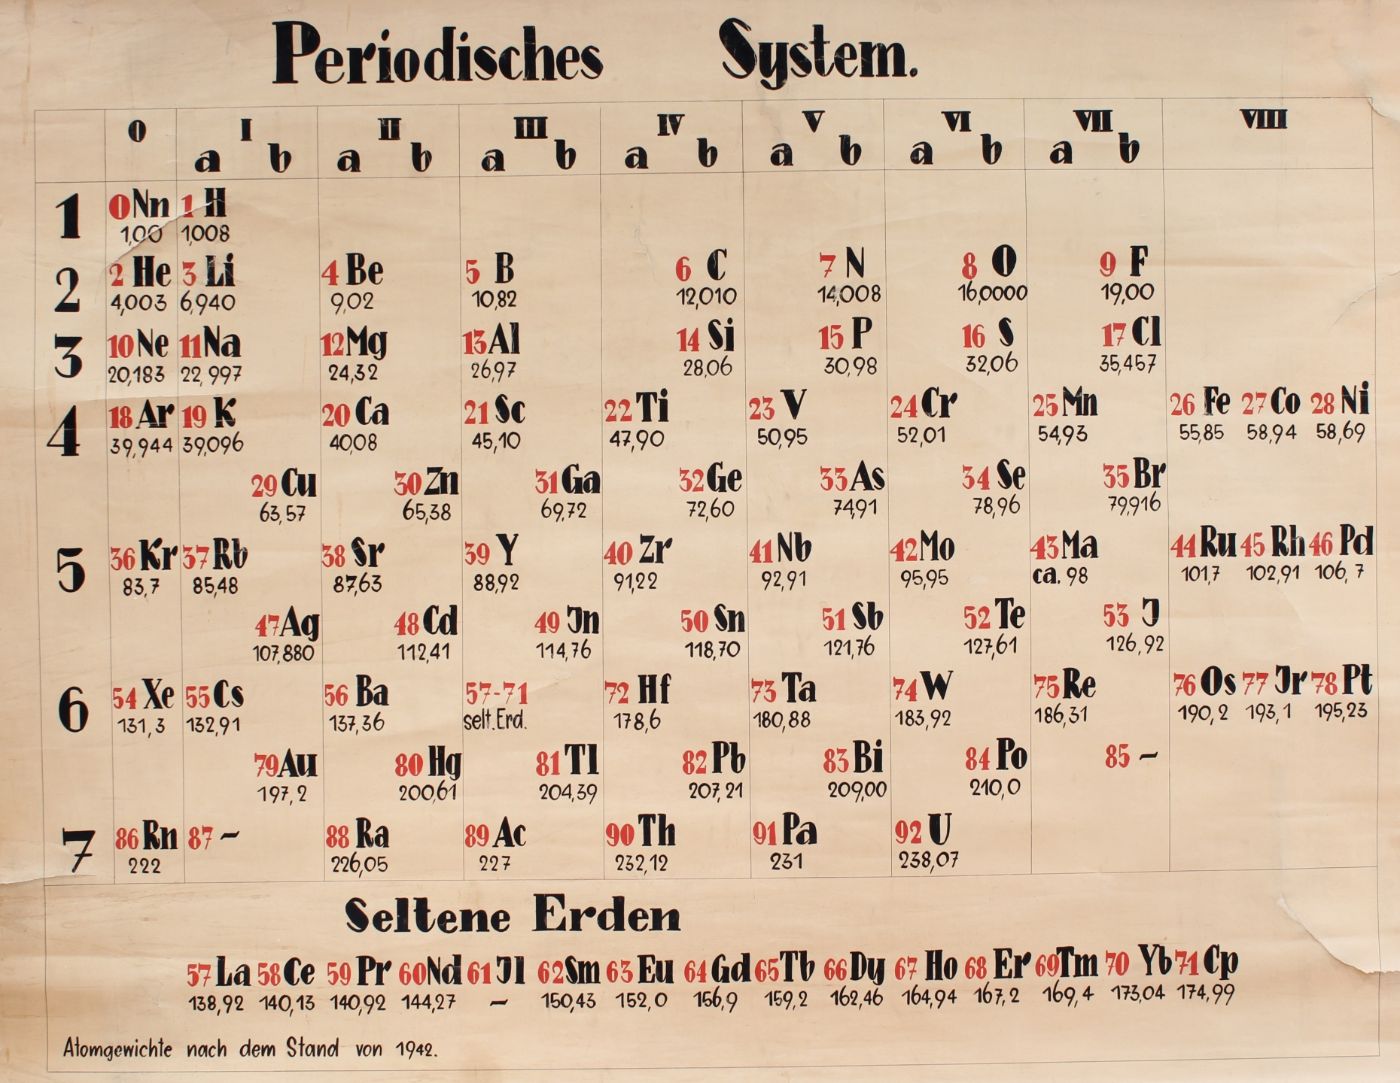 Periodisches System.
0 I II III IV V VI VII VIII
a b a b a b a b a b a b a b
1 0 Nn 1 H
1,00 1,008
2 2 He 3 Li 4 Be 5 B 6 C 7 N 8 O 9 F
4,003 6,940 9,02 10,82 12,010 14,008 16,0000 19,00
3 10 Ne 11 Na 12 Mg 13 Al 14 Si 15 P 16 S 17 Cl
20,183 22,997 24,32 26,97 28,06 30,98 32,06 35,457
4 18 Ar 19 K 20 Ca 21 Sc 22 Ti 23 V 24 Cr 25 Mn 26 Fe 27 Co 28 Ni
39,944 39,096 40,08 45,10 47,90 50,95 52,01 54,93 55,85 58,94 58,69
29 Cu 30 Zn 31 Ga 32 Ge 33 As 34 Se 35 Br
63,57 65,38 69,72 72,60 74,91 78,96 79,916
5 36 Kr 37 Rb 38 Sr 39 Y 40 Zr 41 Nb 42 Mo 43 Ma 44 Ru 45 Rh 46 Pd
83,7 85,48 87,63 88,92 91,22 92,91 95,95 ca. 98 101,7 102,91 106,7
47 Ag 48 Cd 49 Jn 50 Sn 51 Sb 52 Te 53 J
107,880 112,41 114,76 118,70 121,76 127,61 126,92
6 54 Xe 55 Cs 56 Ba 57-71 72 Hf 73 Ta 74 W 75 Re 76 Os 77 Jr 78 Pt
131,3 132,91 137,36 selt. Erd. 178,6 180,88 183,92 186,31 190,2 193,1 195,23
79 Au 80 Hg 81 Tl 82 Pb 83 Bi 84 Po 85 –
197,2 200,61 204,39 207,21 209,00 210,0
7 86 Rn 87 – 88 Ra 89 Ac 90 Th 91 Pa 92 U
222 226,05 227 232,12 231 238,07
Seltene Erden
57 La 58 Ce 59 Pr 60 Nd 61 Jl 62 Sm 63 Eu 64 Gd 65 Tb 66 Dy 67 Ho 68 Er 69 Tm 70 Yb 71 Cp
138,92 140,13 140,92 144,27 – 150,43 152,0 156,9 159,2 162,46 164,94 167,2 169,4 173,04 174,99
Atomgewichte nach dem Stand von 1942.